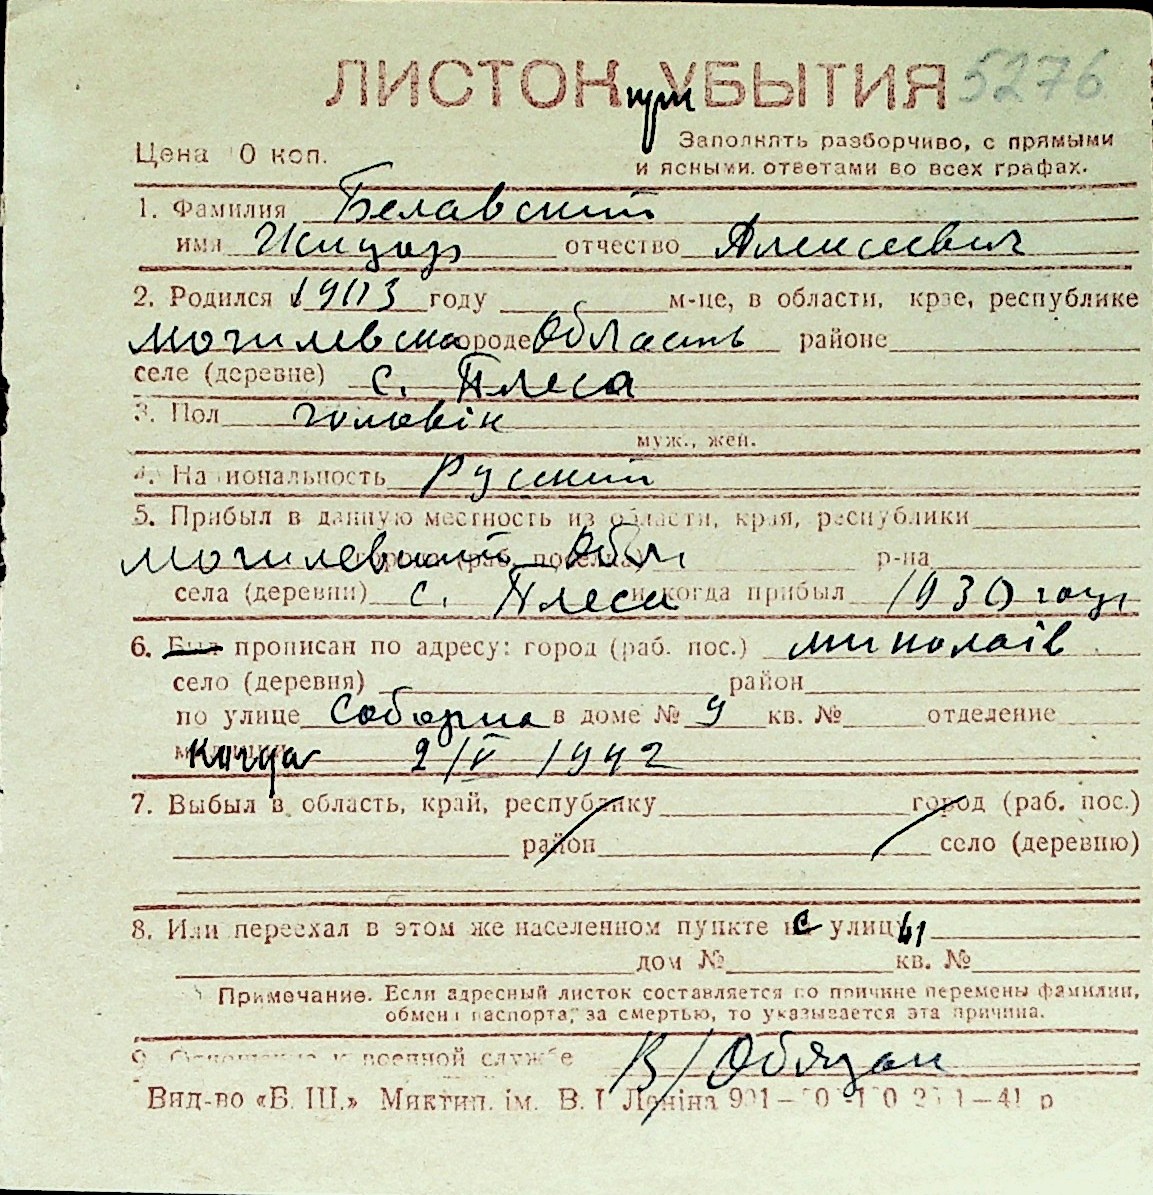 ЛИСТОК при УБЫТИЯ 5276
Цена 0 коп.
Заполнять разборчиво, с прямыми
и ясными. ответами во всех графах.
1. Фамилия Белавский
имя отчество Алексеевич
2. Родился 1903 году м-це, в области, крае, республике
Могилевска городе Область районе
селе (деревне) с. Плеса
3. Пол чоловік
муж., жен.
4. Национальность Русский
5. Прибыл в данную местность из области, края, республики
Могилевский города (раб. поселка) Обл р-на
села (деревни) с. Плеса и когда прибыл 1930 году
6. Был прописан по адресу: город (раб. пос.) миколаів
село (деревня) район
по улице Соборна в доме № 9 кв. № отделение
Когда 2/V 1942
7. Выбыл в область, край, республику город (раб. пос.)
район село (деревню)
8. Или переехал в этом же населенном пункте с улицы
дом № кв. №
Примечание. Если адресный листок составляется по причине перемены фамилии,
обмена паспорта, за смертью, то указывается эта причина.
9. Отношение к военной службе В/Обязан
Вид-во «Б. Ш.» Миктип. ім. В. І Леніна